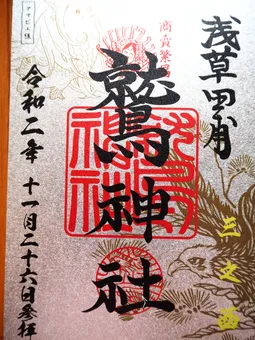 浅草田圃
三之酉
商売繁昌
鷲神社
令和二年 十一月二十六日参拝